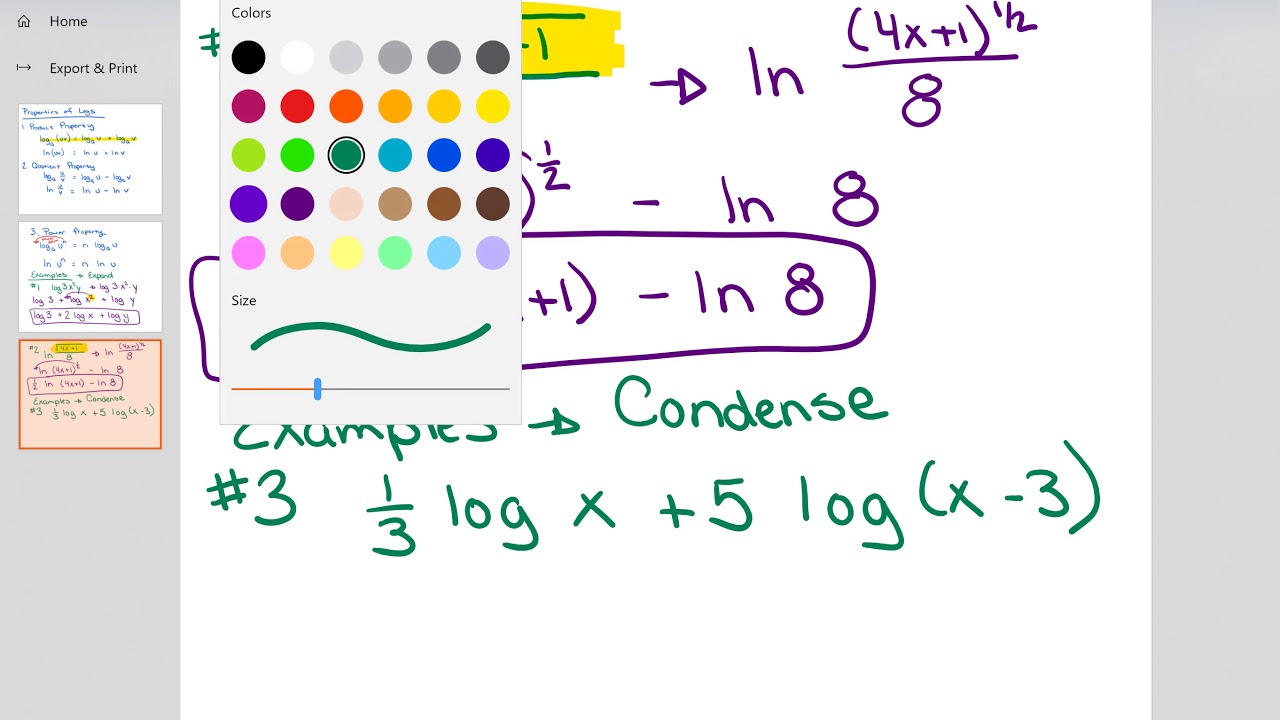 Home
Export & Print
Properties of Logs
1. Product Property
logₐ(uv) = logₐ u + logₐ v
ln(uv) = ln u + ln v
2. Quotient Property
logₐ u/v = logₐ u - logₐ v
ln u/v = ln u - ln v
3. Power Property
logₐ uⁿ = n logₐ u
ln uⁿ = n ln u
Examples → Expand
#1 log 3x²y → log 3x²·y
log 3 + log x² + log y
log 3 + 2 log x + log y
#2 ln √4x+1/8 → ln (4x+1)^1/2/8
ln (4x+1)^1/2 - ln 8
1/2 ln (4x+1) - ln 8
Examples → Condense
#3 1/3 log x + 5 log(x-3)
Colors
Size
# -1 → ln (4x+1)^1/2/8
)^1/2 - ln 8
+1) - ln 8
Examples → Condense
#3 1/3 log x + 5 log (x-3)